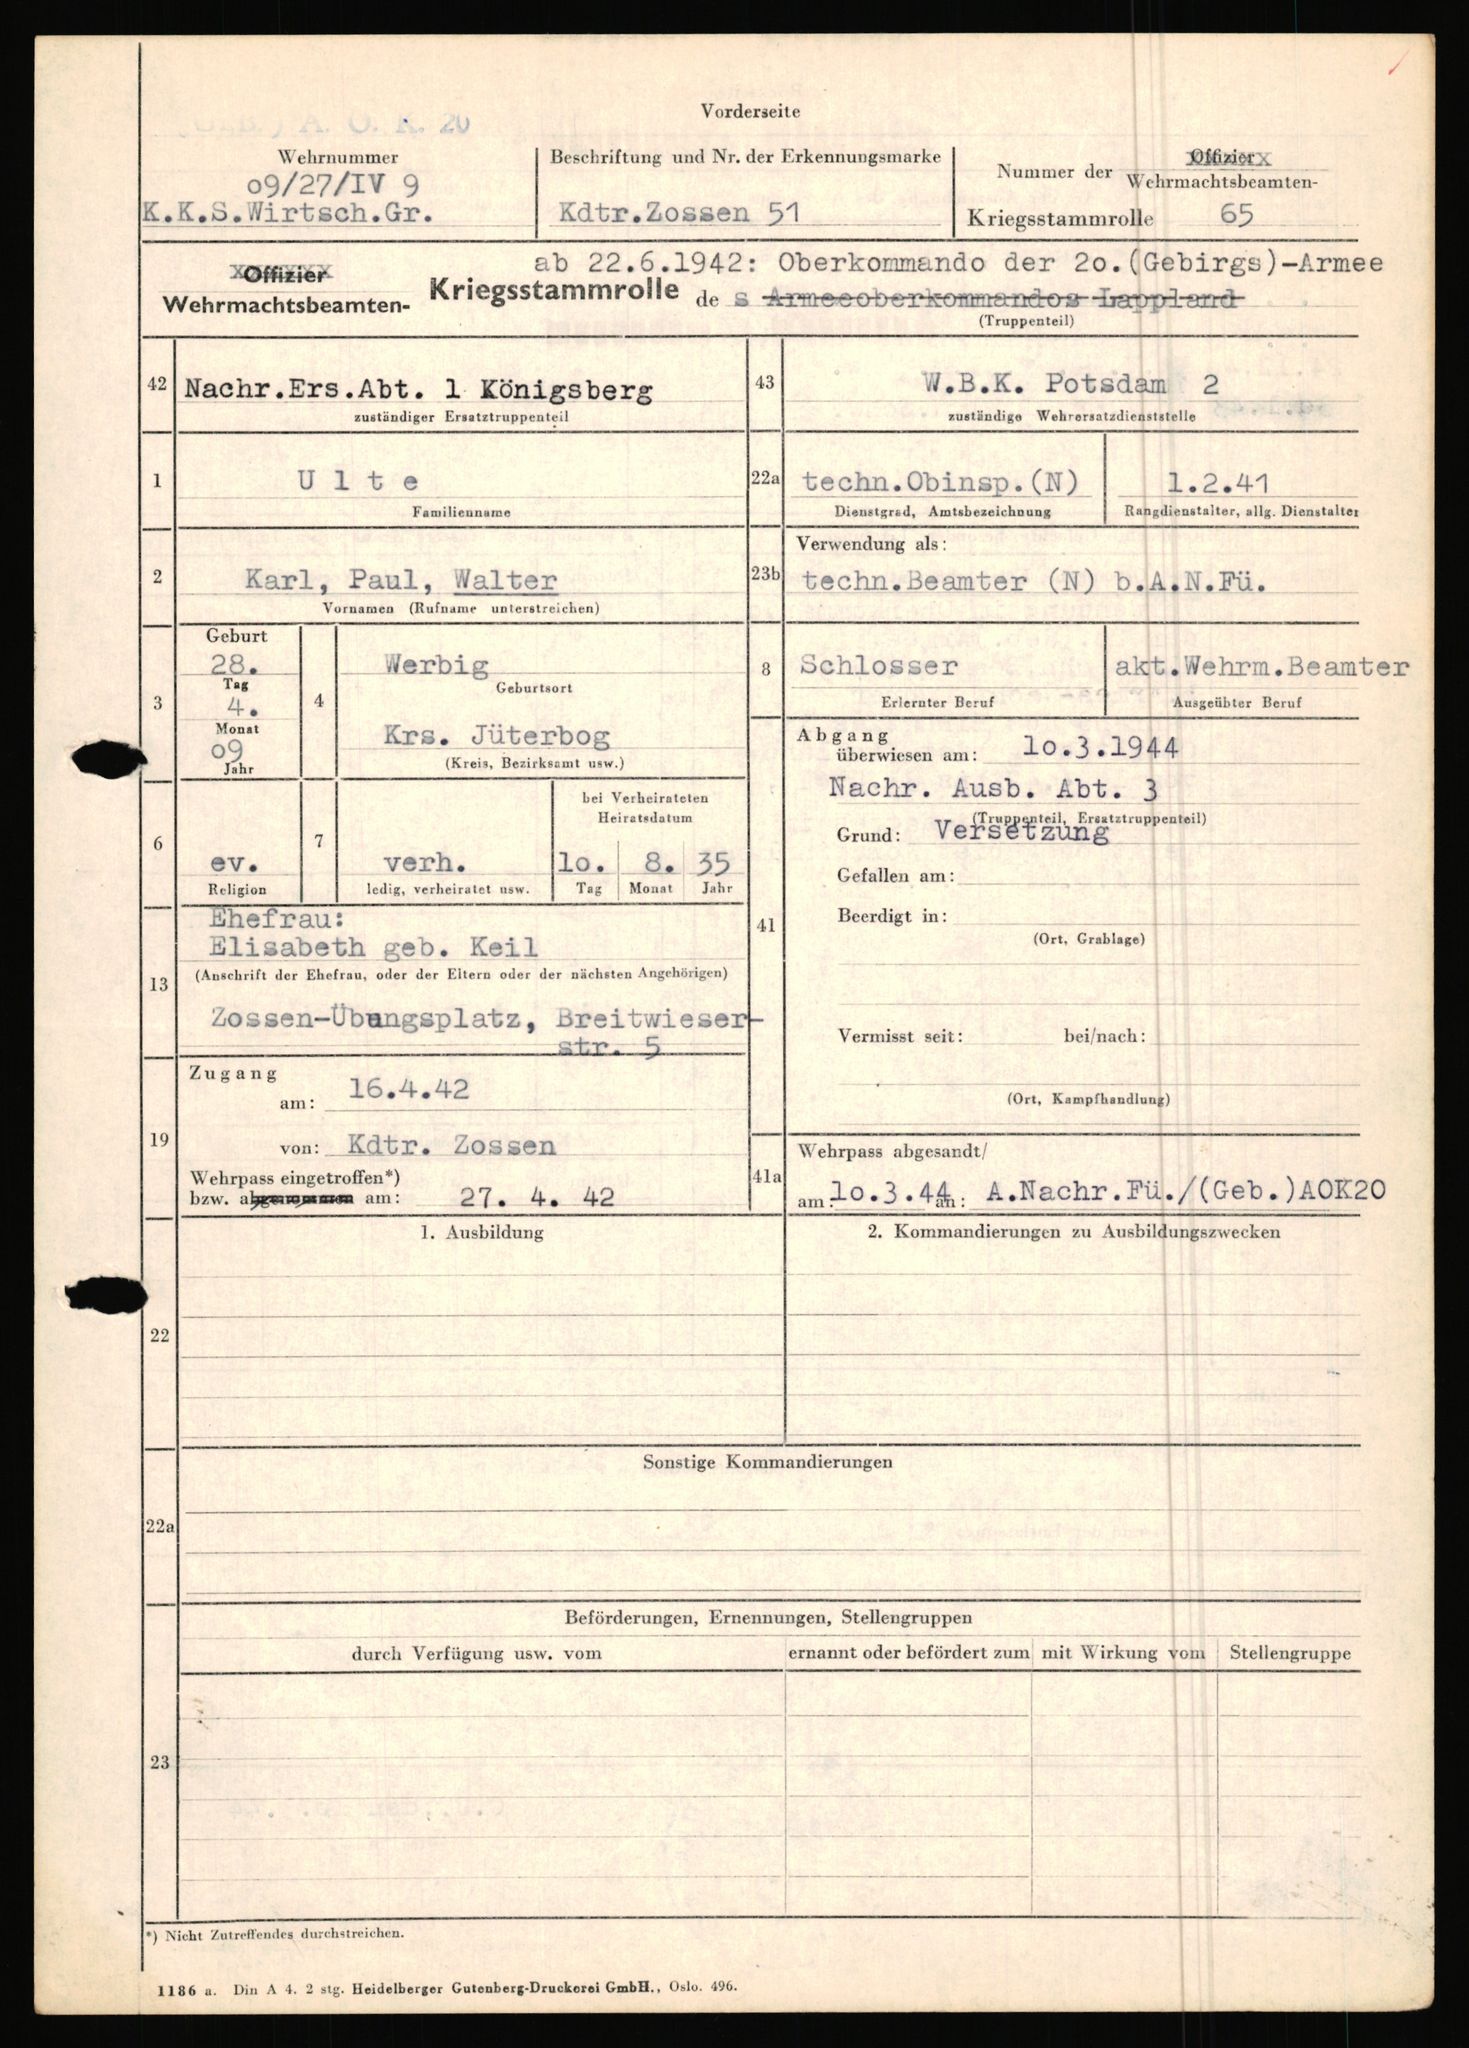 Vorderseite
(GEB.) A. O. K. 20
Wehrnummer
09/27/IV 9
K.K.S.Wirtsch.Gr.
Beschriftung und Nr. der Erkennungsmarke
Kdtr.Zossen 51
Nummer der Offizier Wehrmachtsbeamten-
Kriegsstammrolle 65
ab 22.6.1942: Oberkommando der 2o.(Gebirgs)-Armee
Offizier
Wehrmachtsbeamten- Kriegsstammrolle de s Armeeoberkommandos Lappland
(Truppenteil)
42 Nachr.Ers.Abt. 1 Königsberg
zuständiger Ersatztruppenteil
43 W.B.K. Potsdam 2
zuständige Wehrersatzdienststelle
1 U l t e
Familienname
22a techn.Obinsp.(N) 1.2.41
Dienstgrad, Amtsbezeichnung Rangdienstalter, allg. Dienstalter
2 Karl, Paul, Walter
Vornamen (Rufname unterstreichen)
23b Verwendung als:
techn.Beamter (N) b.A.N.Fü.
3 Geburt
28.
Tag
4.
Monat
o9
Jahr
4 Werbig
Geburtsort
Krs. Jüterbog
(Kreis, Bezirksamt usw.)
8 Schlosser akt.Wehrm.Beamter
Erlernter Beruf Ausgeübter Beruf
6 ev.
Religion
7 verh.
ledig, verheiratet usw.
bei Verheirateten
Heiratsdatum
lo. 8. 35
Tag Monat Jahr
41 Abgang
überwiesen am: lo.3.1944
Nachr. Ausb. Abt. 3
(Truppenteil, Ersatztruppenteil)
Grund: Versetzung
Gefallen am:
Beerdigt in:
(Ort, Grablage)
Vermisst seit: bei/nach:
(Ort, Kampfhandlung)
13 Ehefrau:
Elisabeth geb. Keil
(Anschrift der Ehefrau, oder der Eltern oder der nächsten Angehörigen)
Zossen-Übungsplatz, Breitwieser-
str. 5
19 Zugang
am: 16.4.42
von: Kdtr. Zossen
Wehrpass eingetroffen*)
bzw. abgenommen am: 27. 4. 42
41a Wehrpass abgesandt/
am: lo.3.44 an: A.Nachr.Fü./(Geb.)AOK20
22 1. Ausbildung
2. Kommandierungen zu Ausbildungszwecken
22a Sonstige Kommandierungen
23 Beförderungen, Ernennungen, Stellengruppen
durch Verfügung usw. vom ernannt oder befördert zum mit Wirkung vom Stellengruppe
*) Nicht Zutreffendes durchstreichen.
1186 a. Din A 4. 2 stg. Heidelberger Gutenberg-Druckerei GmbH., Oslo. 496.